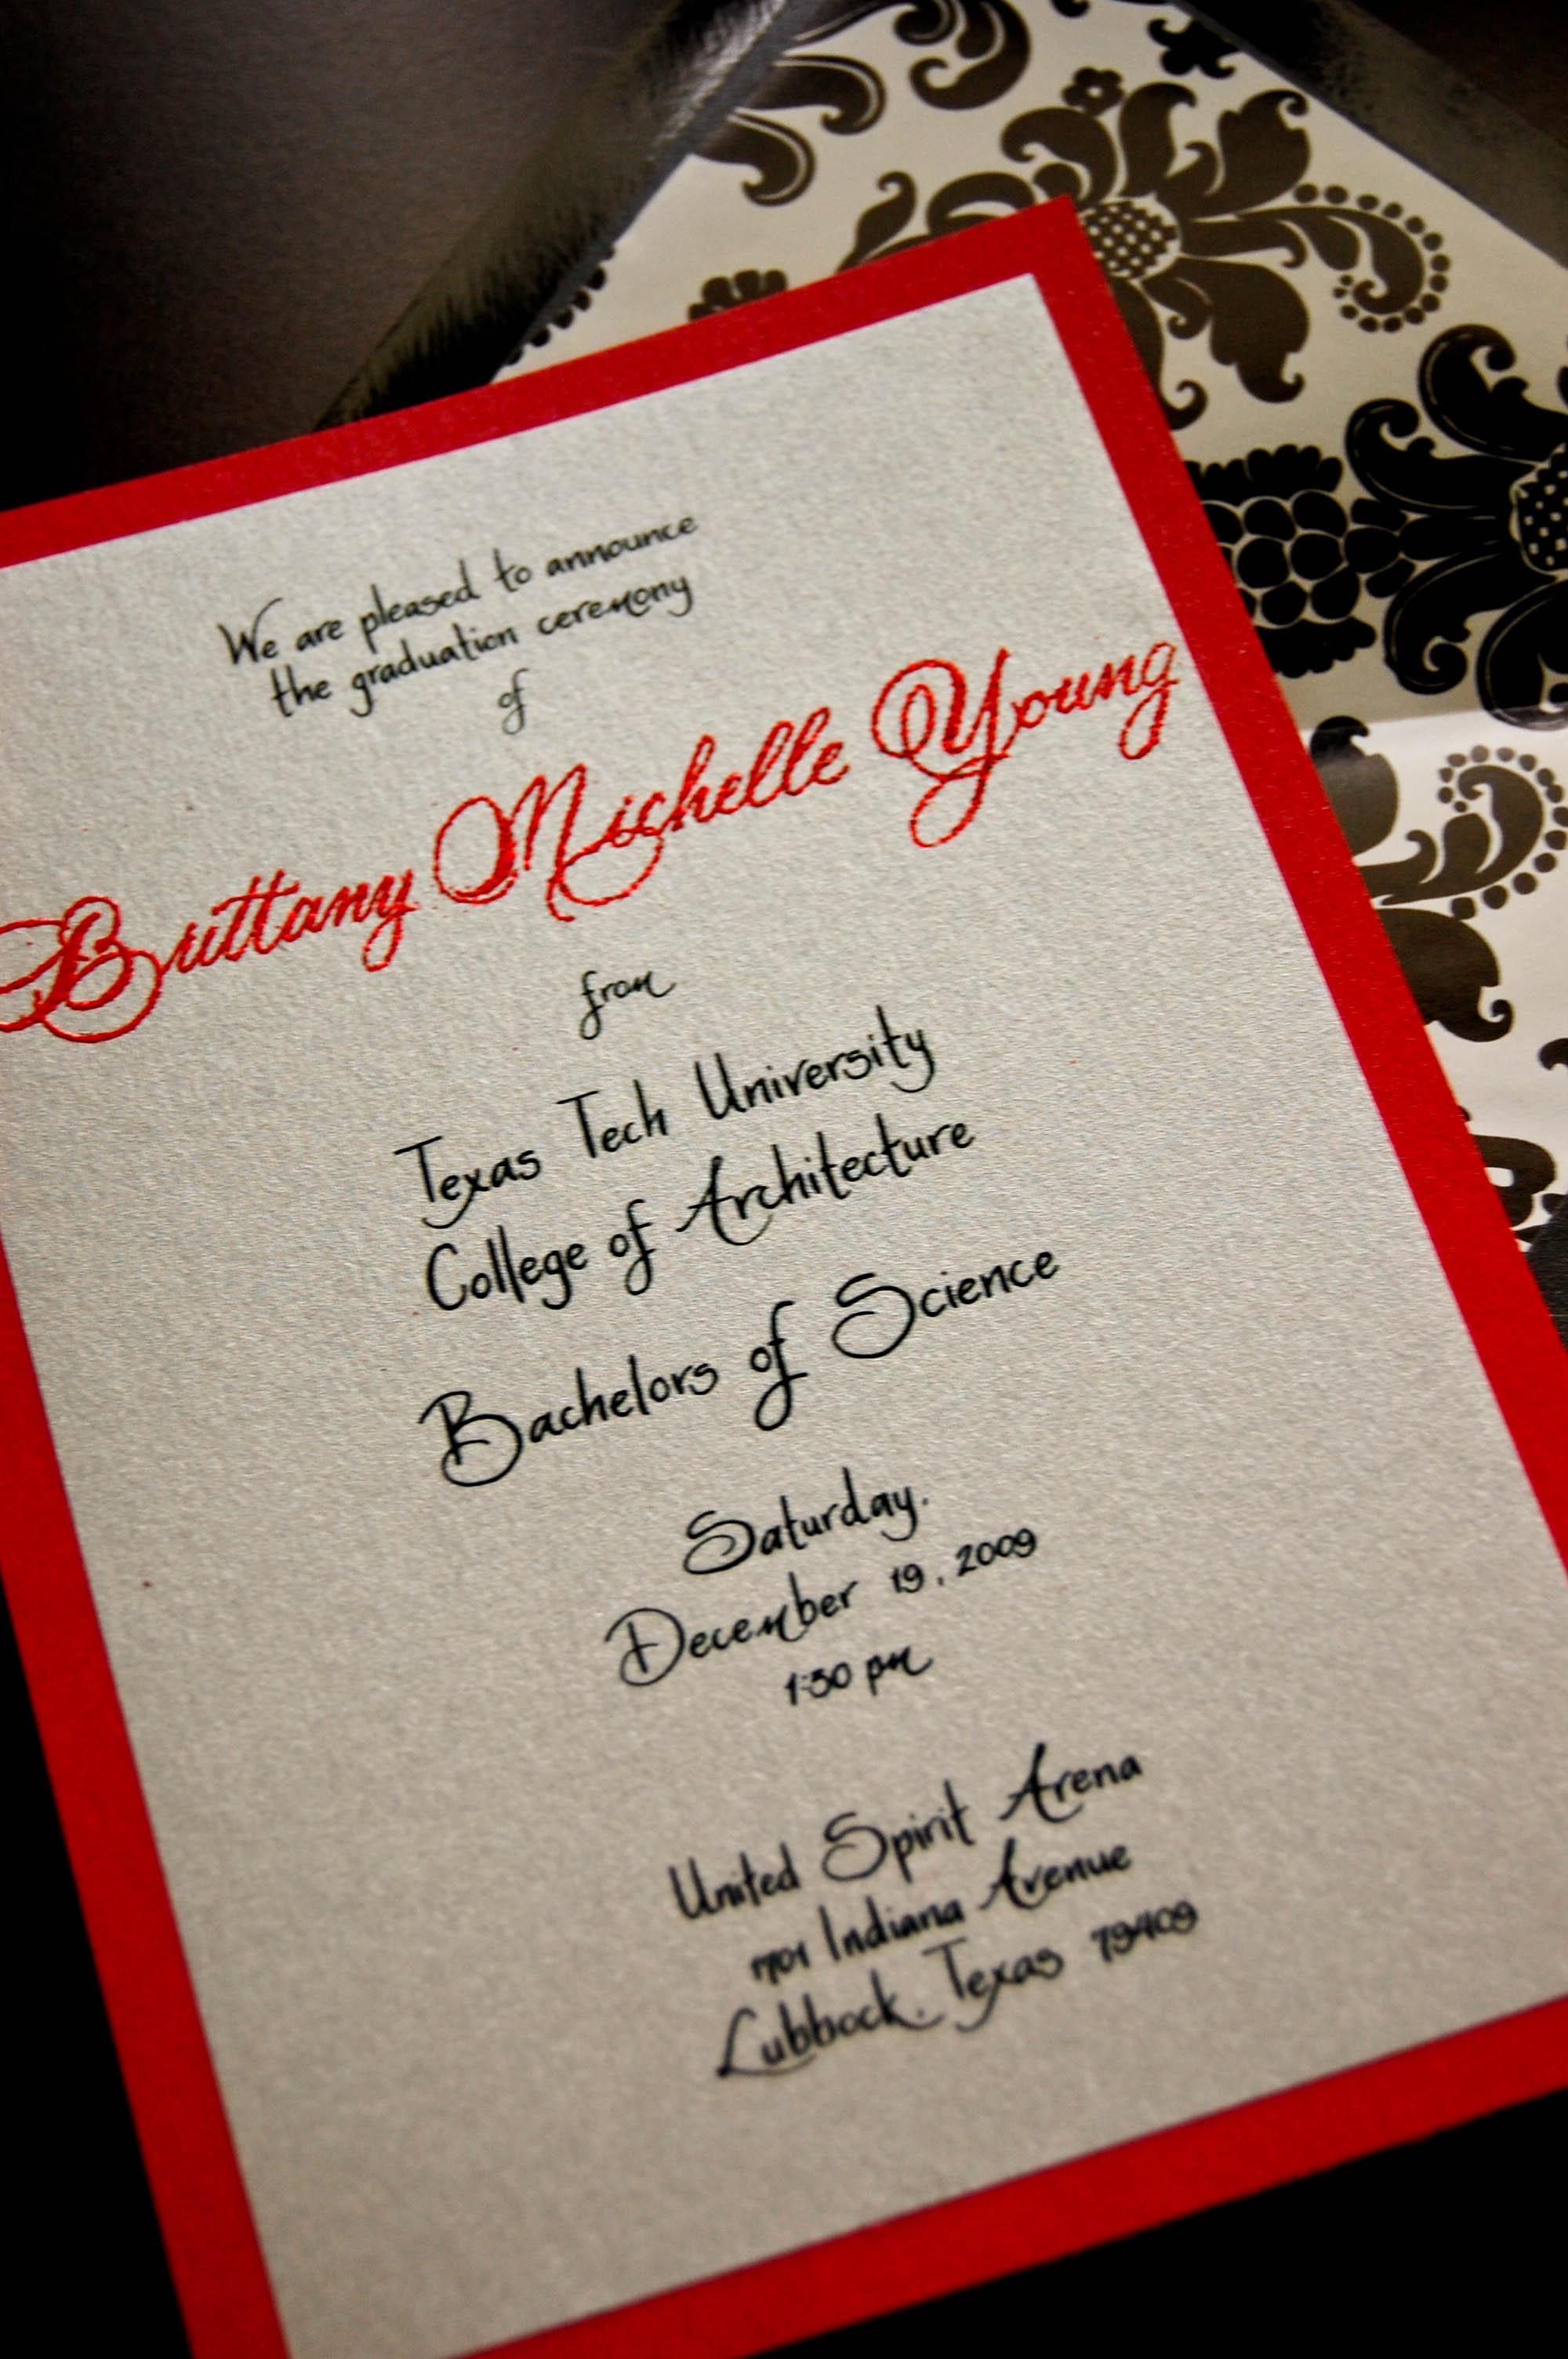 We are pleased to announce
the graduation ceremony
of
Brittany Michelle Young
from
Texas Tech University
College of Architecture
Bachelors of Science
Saturday,
December 19, 2009
1:30 pm
United Spirit Arena
1701 Indiana Avenue
Lubbock, Texas 79409